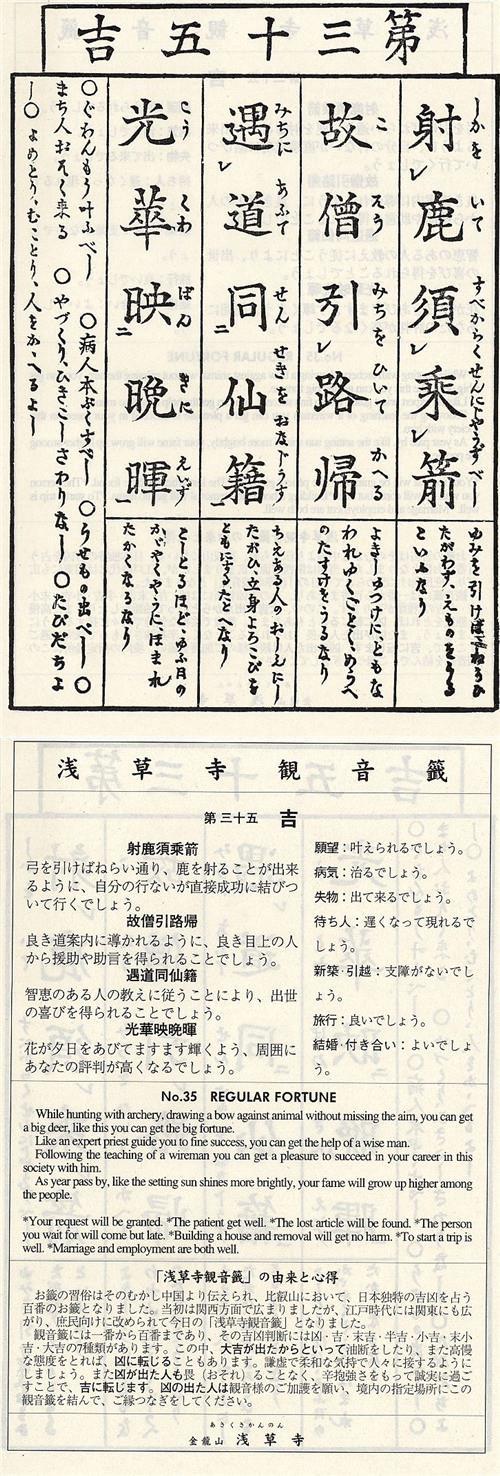 第三十五吉
射鹿須乗箭
しかを いて すべからくせんにじやうずべし
ゆみを引けばねらひ
たがわず、えものをうる
こいふなり
故僧引路帰
こ そう みちをひいて かへる
よきしゆつけに、ともな
われゆくごとし、めうへ
のたすけをうるなり
遇道同仙籍
みちに あふて せん せきを おなじうす
ちえある人のおしえにし
たがひ、立身よろこびを
ともにするたとへなり
光華映晩暉
こう くわ ばん きに えいず
こしとるほど、ゆふ日の
かゞやくやうに、ほまれ
たかくなるなり
○ぐわんもう叶ふべし ○病人本ぶくすべし ○うせもの出べし ○
まち人おそく来る ○やづくり、ひきこしさわりなし ○たびだちよ
し ○よめとり、むことり、人をかゝへるよし
浅草寺観音籤
第三十五 吉
射鹿須乗箭
弓を引けばねらい通り、鹿を射ることが出来
るように、自分の行ないが直接成功に結びつ
いて行くでしょう。
故僧引路帰
良き道案内に導かれるように、良き目上の人
から援助や助言を得られることでしょう。
遇道同仙籍
智恵のある人の教えに従うことにより、出世
の喜びを得られることでしょう。
光華映晩暉
花が夕日をあびてますます輝くよう、周囲に
あなたの評判が高くなるでしょう。
願望：叶えられるでしょう。
病気：治るでしょう。
失物：出て来るでしょう。
待ち人：遅くなって現れるで
しょう。
新築・引越：支障がないでし
ょう。
旅行：良いでしょう。
結婚・付き合い：よいでしょ
う。
No.35 REGULAR FORTUNE
While hunting with archery, drawing a bow against animal without missing the aim, you can get
a big deer, like this you can get the big fortune.
Like an expert priest guide you to fine success, you can get the help of a wise man.
Following the teaching of a wireman you can get a pleasure to succeed in your career in this
society with him.
As year pass by, like the setting sun shines more brightly, your fame will grow up higher among
the people.
*Your request will be granted. *The patient get well. *The lost article will be found. *The person
you wait for will come but late. *Building a house and removal will get no harm. *To start a trip is
well. *Marriage and employment are both well.
「浅草寺観音籤」の由来と心得
お籤の習俗はそのむかし中国より伝えられ、比叡山において、日本独特の吉凶を占う
百番のお籤となりました。当初は関西方面で広まりましたが、江戸時代には関東にも広
がり、庶民向けに改められて今日の「浅草寺観音籤」となりました。
観音籤には一番から百番まであり、その吉凶判断には凶・吉・末吉・半吉・小吉・末小
吉・大吉の7種類があります。この中、大吉が出たからといって油断をしたり、また高慢
な態度をとれば、凶に転じることもあります。謙虚で柔和な気持で人々に接するように
しましょう。また凶が出た人も畏（おそれ）ることなく、辛抱強さをもって誠実に過ご
すことで、吉に転じます。凶の出た人は観音様のご加護を願い、境内の指定場所にこの
観音籤を結んで、ご縁つなぎをしてください。
あさくさかんのん
金龍山 浅草寺